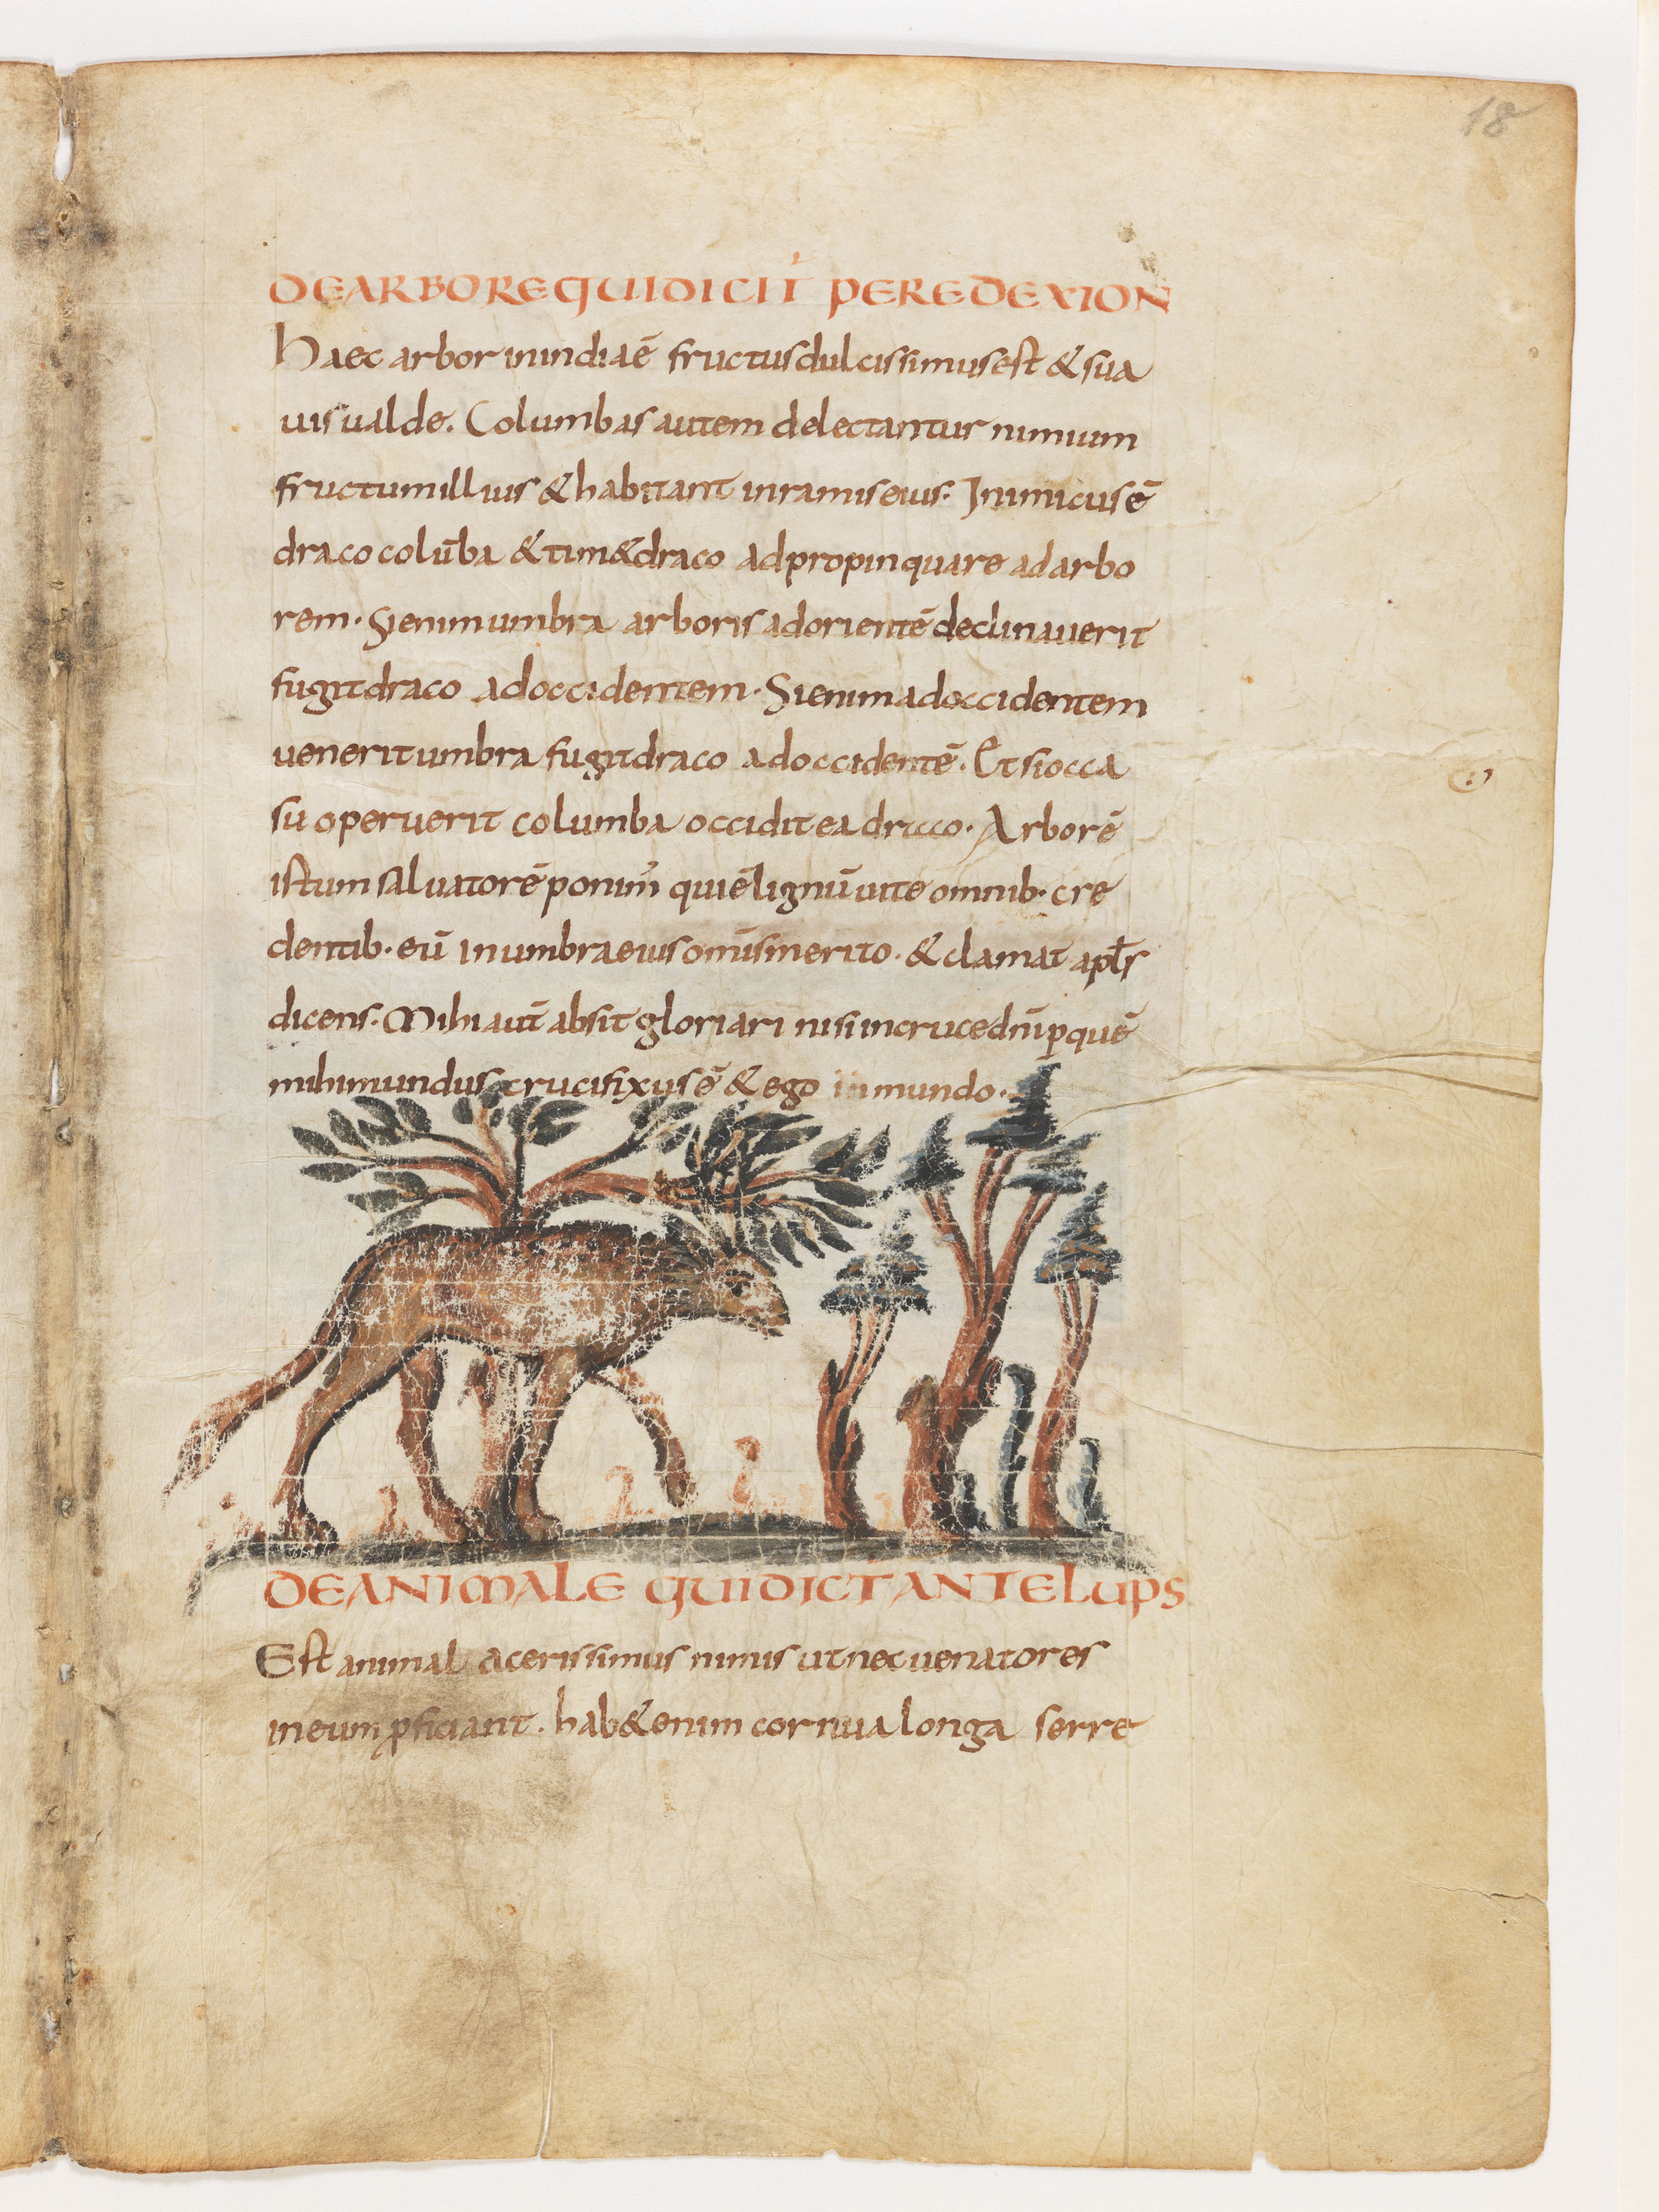 18
DE ARBORE QUI DICIT PEREDEXION
Haec arbor in indiaē fructus dulcissimus est & sua
uis ualde. Columbas autem delectantur nimium
fructum illius & habitant in ramis eius. Inimicus ē
draco colūba & tim& draco adpropinquare ad arbo
rem. Si enim umbra arboris ad orientē declinauerit
fugit draco ad occidentem. Si enim ad occidentem
uenerit umbra fugit draco ad occidentē. Et si occa
su operuerit columba occidit ea draco. Arborē
istum saluatorē ponim' qui ē lignū uite omnib. cre
dentib. eū in umbra eius omīs merito. & clamat apłs
dicens. Mihi aut̄ absit gloriari nisi in cruce dn̄i ꝑ quē
mihi mundus crucifixus ē & ego in mundo.
DE ANIMALE QUI DICT ANTELUPS
Est animal acerissimus nimis ut nec uenatores
in eum ꝓficiant. hab& enim cornua longa serre